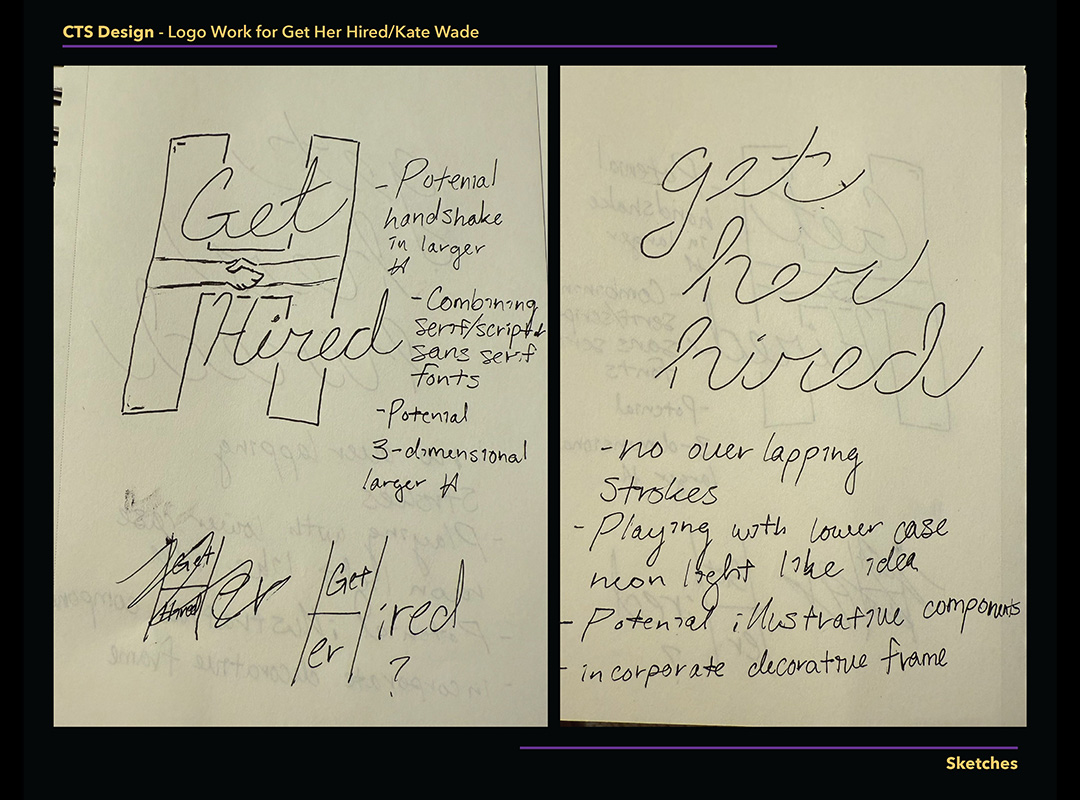 CTS Design - Logo Work for Get Her Hired/Kate Wade
Get
Hired
- Potenial
handshake
in larger
H
- Combining
serif/script &
sans serif
fonts
- Potenial
3-dimensional
larger H
Get
er
Get
ired
er
?
get
her
hired
- no over lapping
strokes
- Playing with lower case
neon light like idea
- Potenial illustrative components
- incorporate decorative frame
Sketches